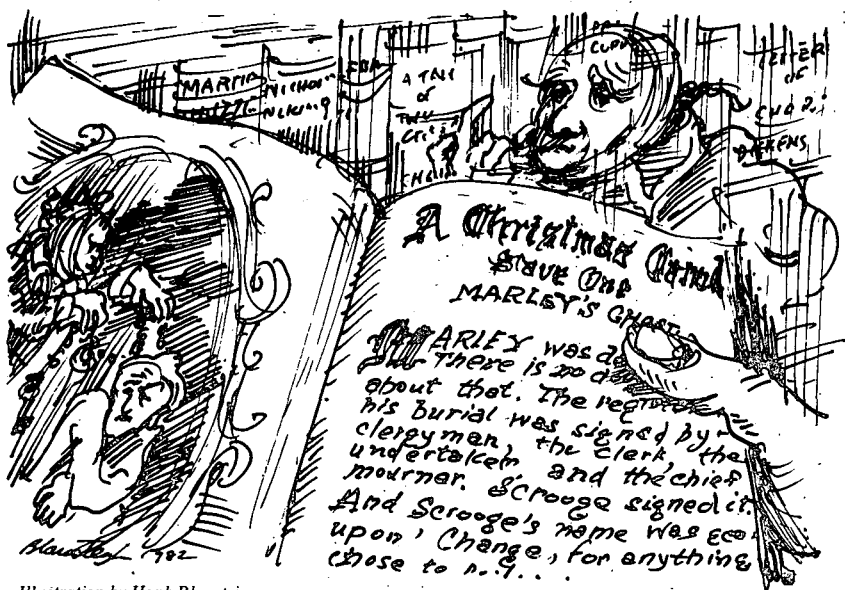 MARTIN
A TALE
of
TWO
LETTERS
OF
DICKENS
A Christmas Carol
Stave One
MARLEY'S GHOST
MARLEY was
There is no d
about that. The
his burial was signed by
clergyman, the Clerk, the
undertaker and the chief
mourner. Scrooge signed it.
And Scrooge's name was goo
upon 'Change, for anything
chose to
1982
Illustration by Hank